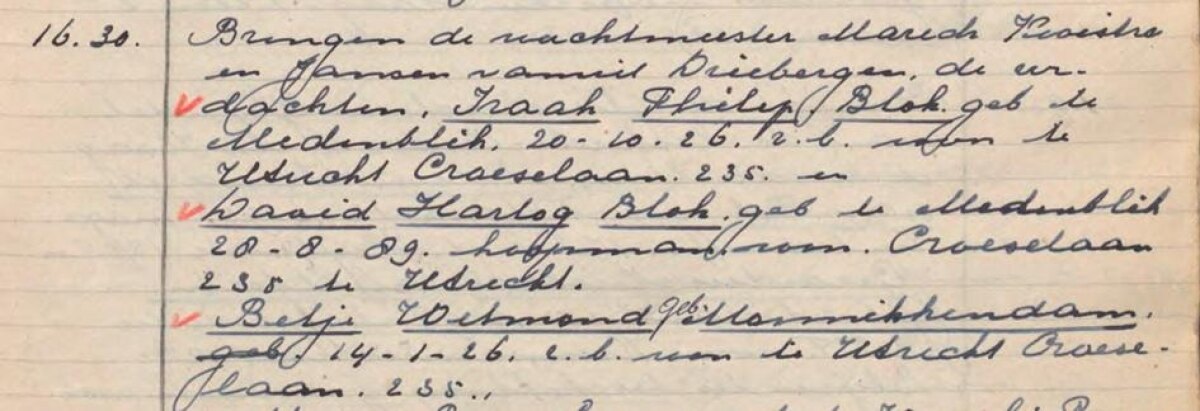 16.30. Brengen de wachtmeester Marech Kooistra
en Jansen vanuit Driebergen, de ver-
dachten, Izaak Philip Blok. geb te
Medenblik. 20-10-26. z.b. won te
Utrecht Croeselaan. 235. en
David Hartog Blok. geb te Medenblik
28-8-89. koopman. won. Croeselaan
235 te Utrecht.
Betje Wetmond geb. Monnikkendam.
geb. 14-1-26. z.b. won te Utrecht Croese-
laan. 235.,